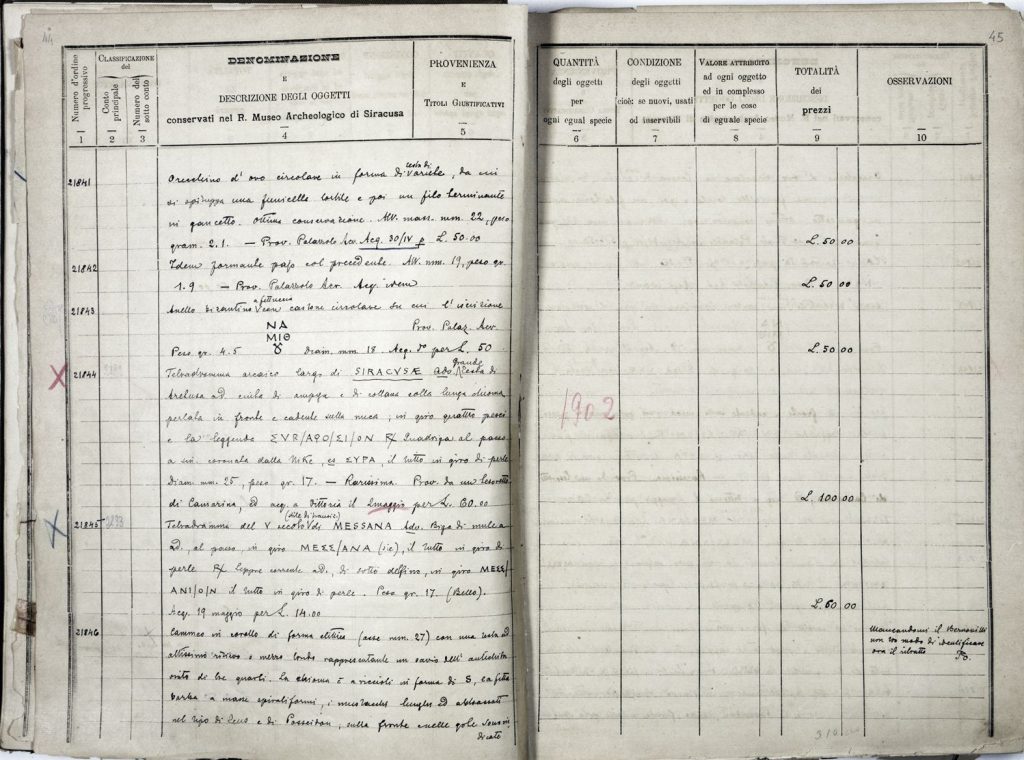 44
Numero d'ordine progressivo
CLASSIFICAZIONE del
Conto principale
Numero del sotto conto
DENOMINAZIONE
E
DESCRIZIONE DEGLI OGGETTI
conservati nel R. Museo Archeologico di Siracusa
PROVENIENZA
E
TITOLI GIUSTIFICATIVI
1
2
3
4
5
21841
Orecchino d'oro circolare in forma di testa di, da cui
si sviluppa una funicella tortile e poi un filo terminante
in gancetto. Ottima conservazione. Alt. mass. mm. 22, peso
gram. 2.1. — Prov. Palazzolo Acr. Acq. 30/IV p L. 50.00
21842
Idem formante pajo col precedente. Alt. mm. 19, peso gr.
1.9 — Prov. Palazzolo Acr. Acq. idem
21843
Anello bizantino a fettuccia con castone circolare su cui l'iscrizione
ΝΑ
ΜΙΘ
Prov. Palaz. Acr.
Peso gr. 4.5 diam. mm 18. Acq. per L. 50
21844
Tetradramma arcaico largo di SIRACVSÆ Ads. grande testa di
Aretusa ad. cinta di ampyx e di collana colla lunga chioma
perlata in fronte e cadente sulla nuca; in giro quattro pesci
e la leggenda ΣVR/AϘO/ΣI/ON R/ Quadriga al passo
a sin. coronata dalla Nike, es ΣΥΡΑ, il tutto in giro di perle
Diam. mm. 25, peso gr. 17. — Rarissima. Prov. da un tesoretto
di Camarina, ed acq. a Vittoria il 2 maggio per L. 60.00
21845
Tetradramma del V secolo di MESSANA Ads. Biga di mule a
ad, al passo, in giro MEΣΣ/ANA (sic), il tutto in giro di
perle R/ lepre corrente ad, di sotto delfino, in giro MEΣΣ/
ANI/O/N il tutto in giro di perle. Peso gr. 17. (Bello).
Acq. 19 maggio per L. 14.00
21846
Cammeo in corallo di forma ellittica (asse mm. 27) con una testa ad
altissimo rilievo e mezzo tondo rappresentante un savio dell'antichità
voltato di tre quarti. La chioma è a riccioli in forma di S, la fitta
barba a masse spiraliformi, i mustacchi lunghi ed abbassati
nel tipo di Zeus e di Poseidon, sulla fronte e nelle gote sono in
dicate
45
QUANTITÀ
degli oggetti
per
ogni egual specie
CONDIZIONE
degli oggetti
cioè: se nuovi, usati
od inservibili
VALORE ATTRIBUITO
ad ogni oggetto
ed in complesso
per le cose
di eguale specie
TOTALITÀ
dei
prezzi
OSSERVAZIONI
6
7
8
9
10
L. 50 00
L. 50 00
L. 50 00
1902
L. 100 00
L. 60 00
Mancandomi il Bernouilli
non ho modo di identificare
ora il ritratto
310